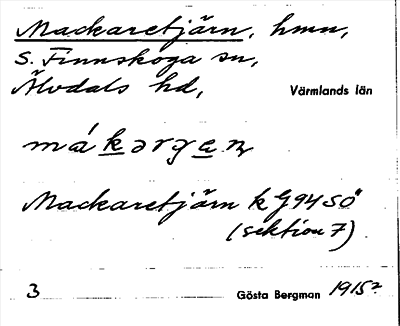 Mackaretjärn, hmn,
S. Finnskoga sn,
Älvdals hd, Värmlands län
mákərgən
Mackaretjärn k G94 SÖ
(sektion 7)
3 Gösta Bergman 1915?